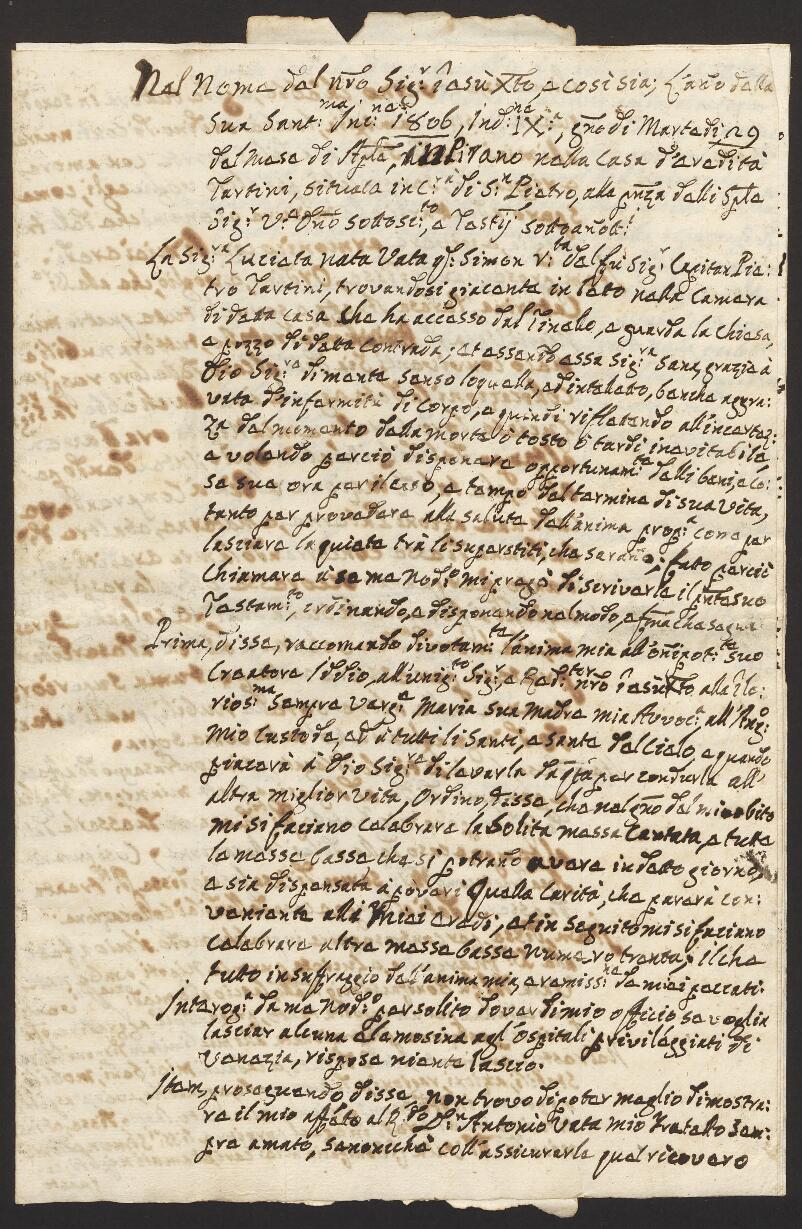 Nel Nome del nr̃o Sig:r Iesù Xto e così sia; L'año della
Sua Sant:ma Inc:ne 1806, Ind:ne IX:a, gño di Martedi 29
del Mese di Aple, in Pirano nella Casa d'eredità
Tartini, situata in C:a di S:n Pietro, alla pñza delli Sple
Sig:r V:e Dño sottosc:to, e Testij sottoañott:i
La Sig:ra Luciata nata Vata q:m Simon r:ta del fu Sig:r Capitan Pie:
tro Tartini, trovandosi giacente in letto nella Camera
di detta casa che ha accesso dal Tinello, e guarda la Chiesa,
e pozzo di detta contrada; et essendo essa Sig:ra sana, grazie à
Dio Sig:re di mente senso loquella, ed intelletto, benche aggra:
vata d'infermità di corpo, e quindi riflettendo all'incertez:
za del momento della morte ò tosto ò tardi inevitabile,
e volendo perciò disponere opportunam:te delli beni, e co:
se sue ora per il caso, e tempo del termine di sua vita,
tanto per provedere alla salute dell'anima prop:a come per
lasciare la quiete trà li superstiti, che sarano; fatto perciò
chiamare à se me Nod:o mi pregò di scriverle il pñte suo
Testam:to, ordinando, e disponendo nel modo, e fma che segue
Prima, disse, raccomando divotam:te l'anima mia all'oñipot:te suo
Creatore Iddio, all'unig:to Sig:r, e Red:tor nr̃o Iesù Xto alla Glo:
rios:ma sempre Verg:e Maria sua Madre mia Avvoc:a all'Ang:o
mio Custode, ed à tutti li Santi, e Sante del Cielo, e quando
piacerà à Dio Sig:re di levarla da q̃ta per condurla all'
altra miglior vita, Ordino, disse, che nel gño del mio obito
mi si faciano celebrare la solita messa Cantata, e tutte
le messe basse, che si potrano avere in detto giorno,
e sia dispensata à poveri quella Carità, che parerà con:
veniente alli miei eredi, et in seguito mi si faciano
celebrare altre messe basse numero trenta; il che
tutto in suffraggio dell'anima mia, e remiss:ne de miei peccati.
Interog:a da me Nod:o per solito dover di mio officio se voglia
lasciar alcuna elemosina agl'Ospitali privileggiati di
Venezia, rispose niente lascio.
Item, proseguendo disse, non trovo di poter meglio dimostra:
re il mio affetto al R:do D:n Antonio Vata mio Fratello sem:
pre amato, senonchè coll'assicurarle quel ricovero